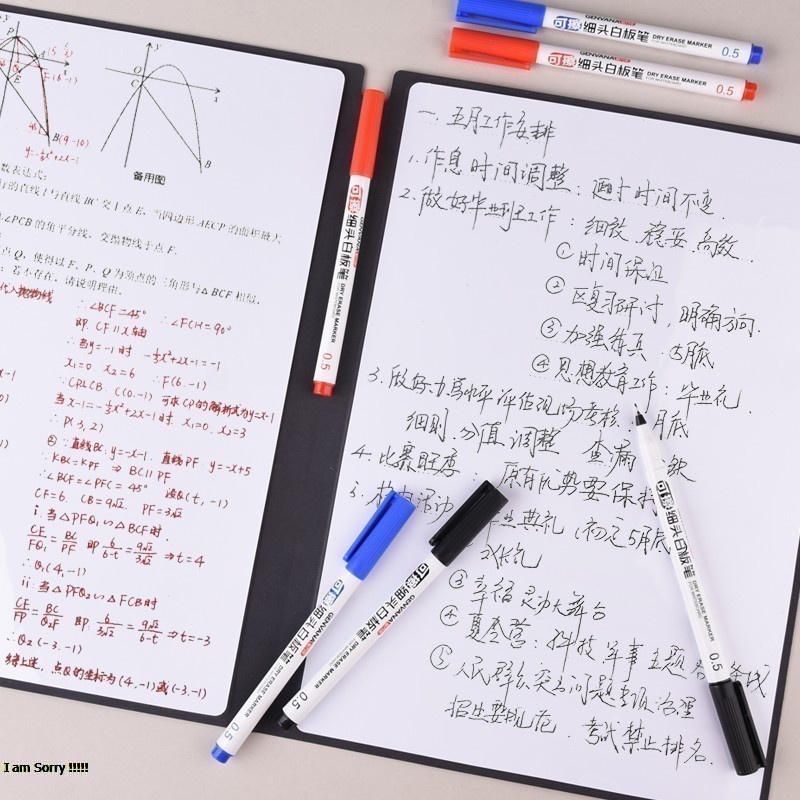 备用图
数表达式:
的直线 l 与直线 BC 交于点 E, 当四边形 AECP 的面积最大
∠PCB 的角平分线, 交抛物线于点 F.
点 Q, 使得以 F、P、Q 为顶点的三角形与△BCF 相似,
若不存在, 请说明理由.
B(9,-10)
y=-⅓x²+2x-1
代入抛物线
∴∠BCF=45° ∴∠FCH=90°
即 CF∥x轴
∴当y=-1时 -⅓x²+2x-1=-1
x₁=0 x₂=6 ∴F(6,-1)
∵CP⊥CB C(0,-1) 可求CP的解析式为y=x-1
当x-1=-⅓x²+2x-1时, x₁=0, x₂=3
∴P(3,2)
② ∵直线BC: y=-x-1, 直线PF: y=-x+5
∴KBC=KPF ⇒ BC∥PF
∴∠BCF=∠PFC=45° 设Q(t,-1)
CF=6, CB=9√2, PF=3√2
i. 当△PFQ₁∽△BCF时.
CF/FQ₁=BC/PF 即 6/(6-t)=9√2/3√2 ⇒t=4
∴Q₁(4,-1)
ii: 当△PFQ₂∽△FCB时
CF/FP=BC/Q₂F 即: 6/3√2=9√2/(6-t) ⇒t=-3
∴Q₂(-3,-1)
综上述, 点Q的坐标为(4,-1)或(-3,-1)
一、五月工作安排
1. 作息时间调整: 时间不变.
2. 做好毕业班工作: 细致、稳妥、高效.
① 时间保证
② 区复习研讨, 明确方向.
③ 加强 5月底
④ 思想教育工作: 毕业礼.
3. 做好办学水平评估现场 月底
细则、分值 调整 查漏 缺
4. 比赛旺季: 原有优势要保持
5. 活动 业典礼 (初定5月底
礼
③ 幸福 大舞台
④ 夏令营: 科技 军事 主题
⑤ 人民群众 问题专项治理
招生要规范. 考试禁止排名.
GENVANA
可擦 细头白板笔 DRY ERASE MARKER 0.5
GENVANA
可擦 细头白板笔 DRY ERASE MARKER 0.5
可擦 细头白板笔 DRY ERASE MARKER 0.5
可擦 细头白板笔 GENVANA DRY ERASE MARKER 0.5
可擦 细头白板笔 GENVANA DRY ERASE MARKER 0.5
可擦 细头白板笔 GENVANA DRY ERASE MARKER 0.5
I am Sorry !!!!!